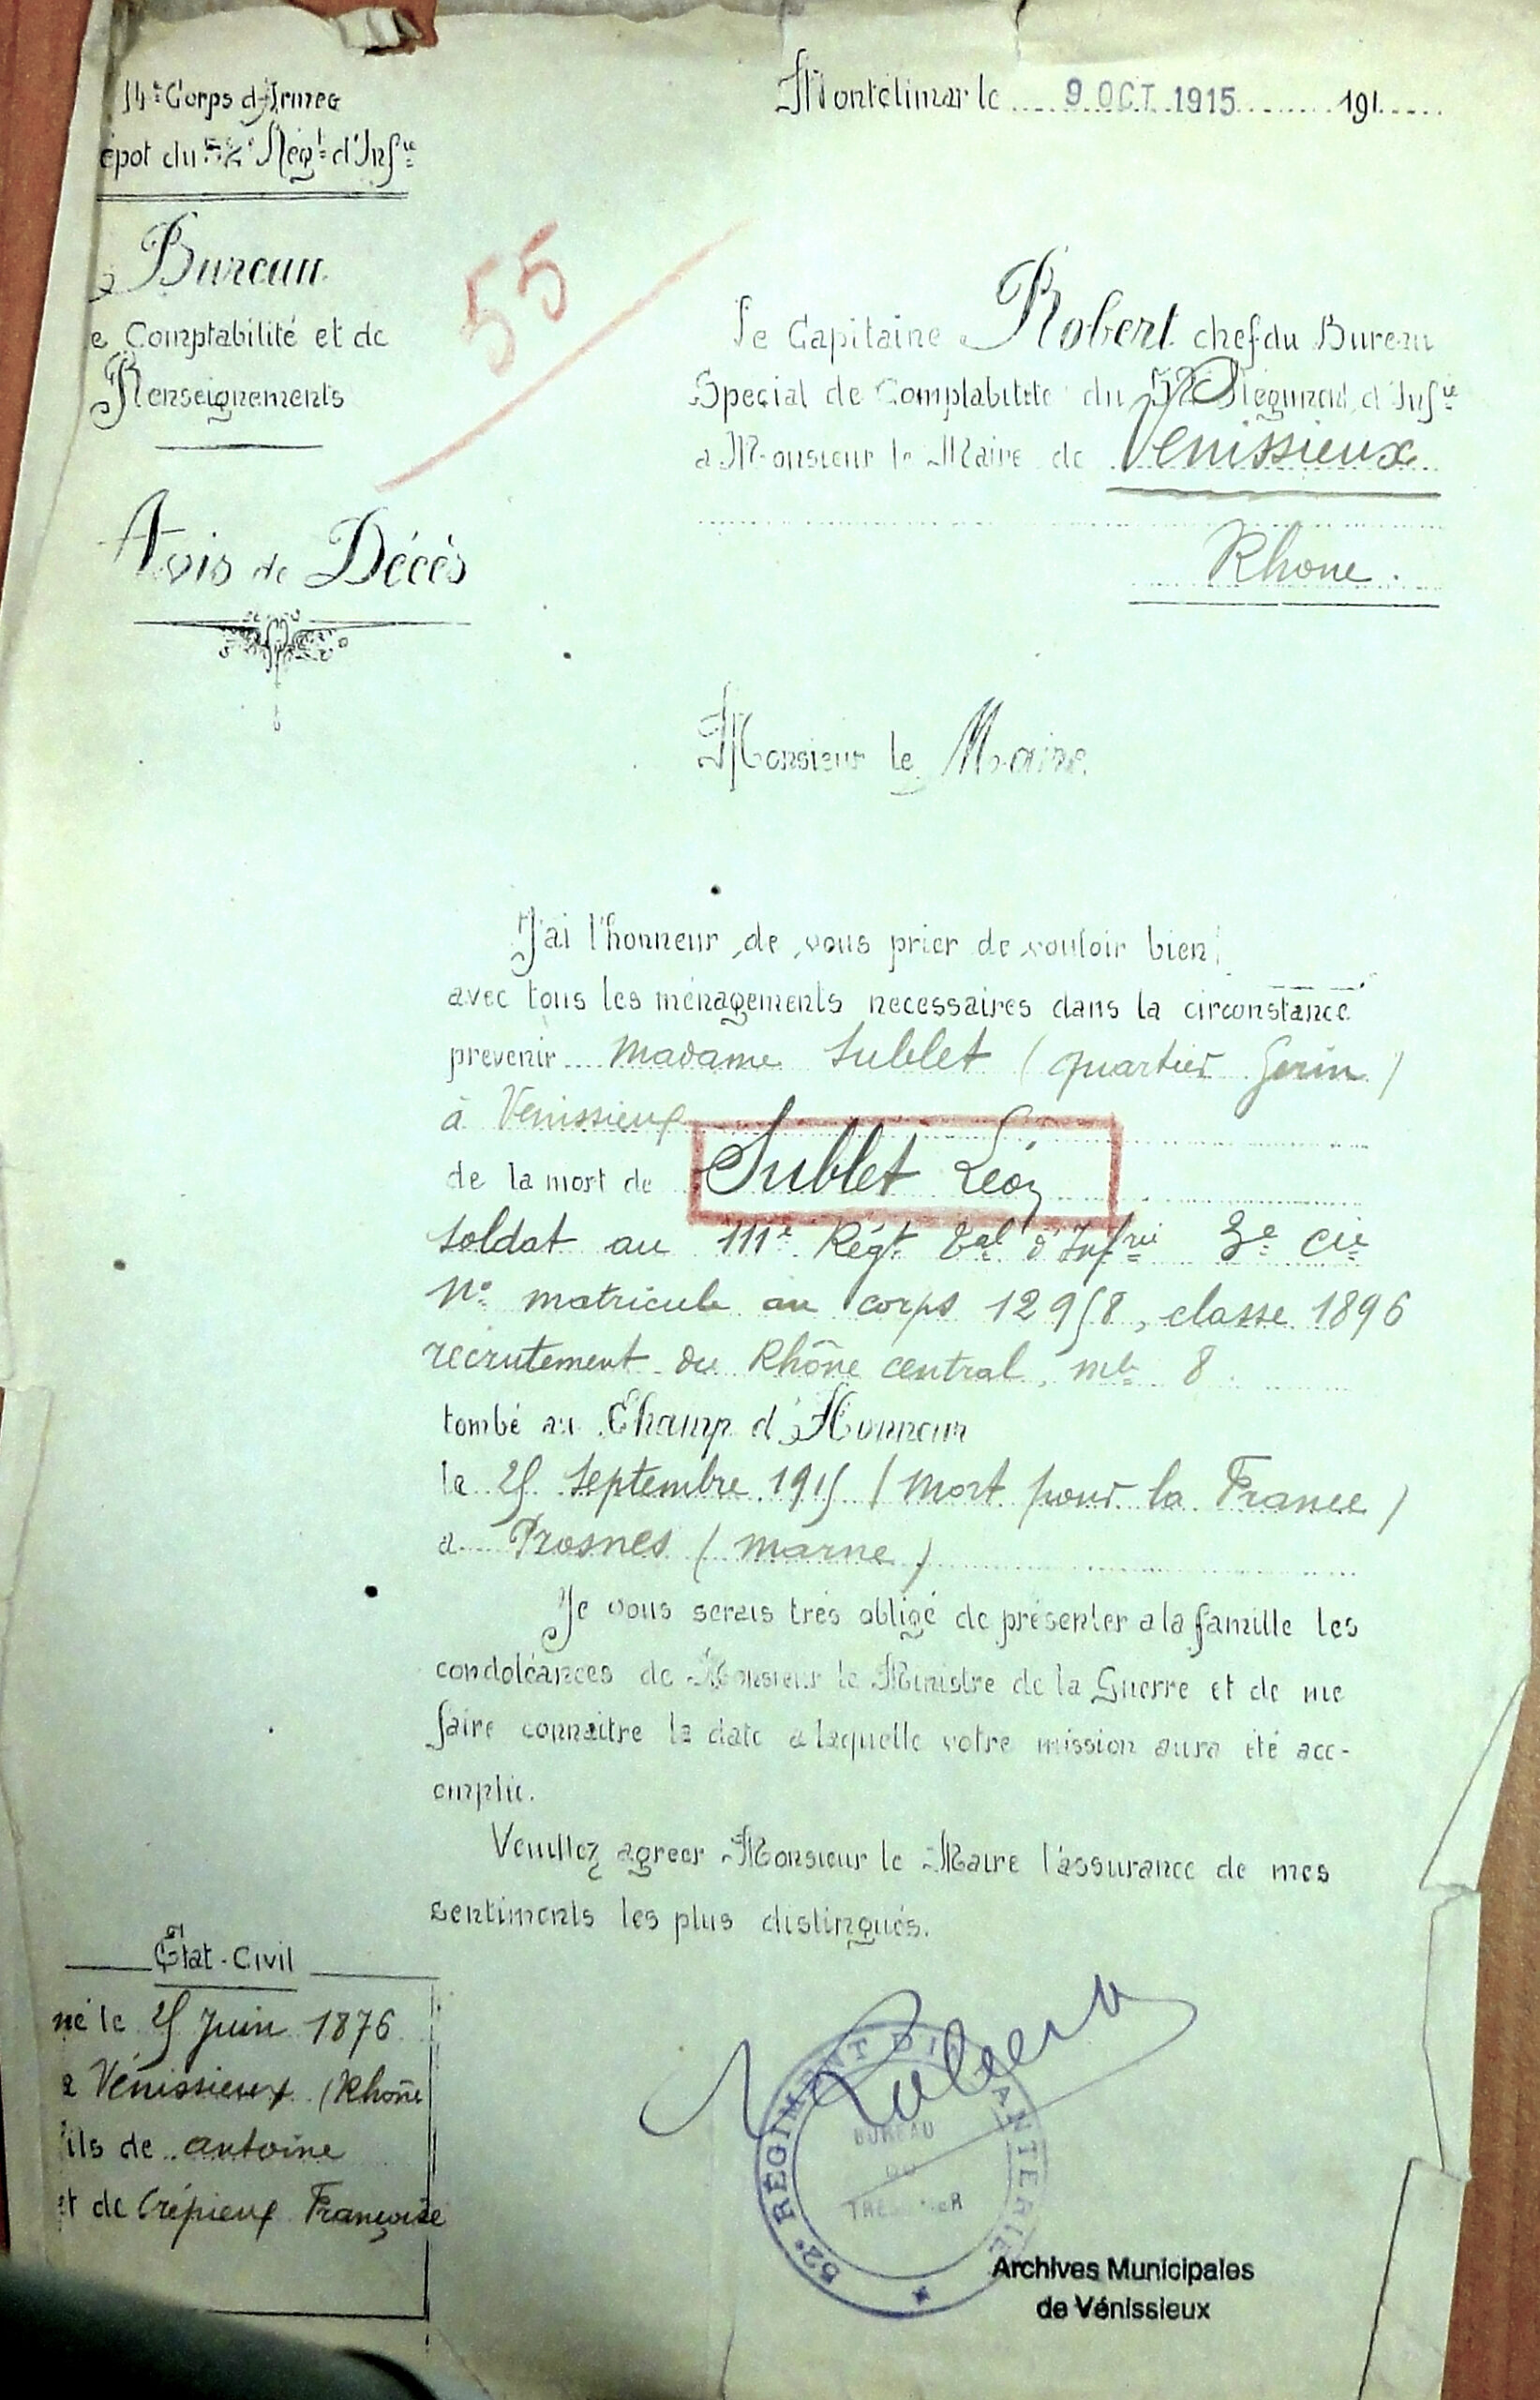 14e Corps d'Armée
épot du 52e Régt d'Infie
Bureau
e Comptabilité et de
Renseignements
Avis de Décès
55
Montélimar le 9 OCT 1915 191
Le Capitaine Robert chef du Bureau
Special de Comptabilité du 52 Régiment d'Infie
a Monsieur le Maire de Vénissieux
Rhone.
Monsieur le Maire
J'ai l'honneur de vous prier de vouloir bien
avec tous les ménagements necessaires dans la circonstance
prevenir Madame Sublet (quartier Gerin)
à Venissieux
de la mort de Sublet Léon
soldat au 111e Régt Tal d'Infrie 3e Cie
No matricule au corps 12958, classe 1896
recrutement du Rhône central, mle 8
tombé au Champ d'Honneur
le 25 Septembre 1915 (Mort pour la France)
a Prosnes (Marne)
Je vous serais très obligé de présenter a la famille les
condoléances de Monsieur le Ministre de la Guerre et de me
faire connaitre la date a laquelle votre mission aura été acc-
omplie.
Veuillez agreer Monsieur le Maire l'assurance de mes
sentiments les plus distingués.
État-Civil
né le 25 Juin 1876
a Vénissieux (Rhône
fils de Antoine
et de Crépieux Françoise
52e REGIMENT D'INFANTERIE
BUREAU
DU
TRESORIER
Archives Municipales
de Vénissieux